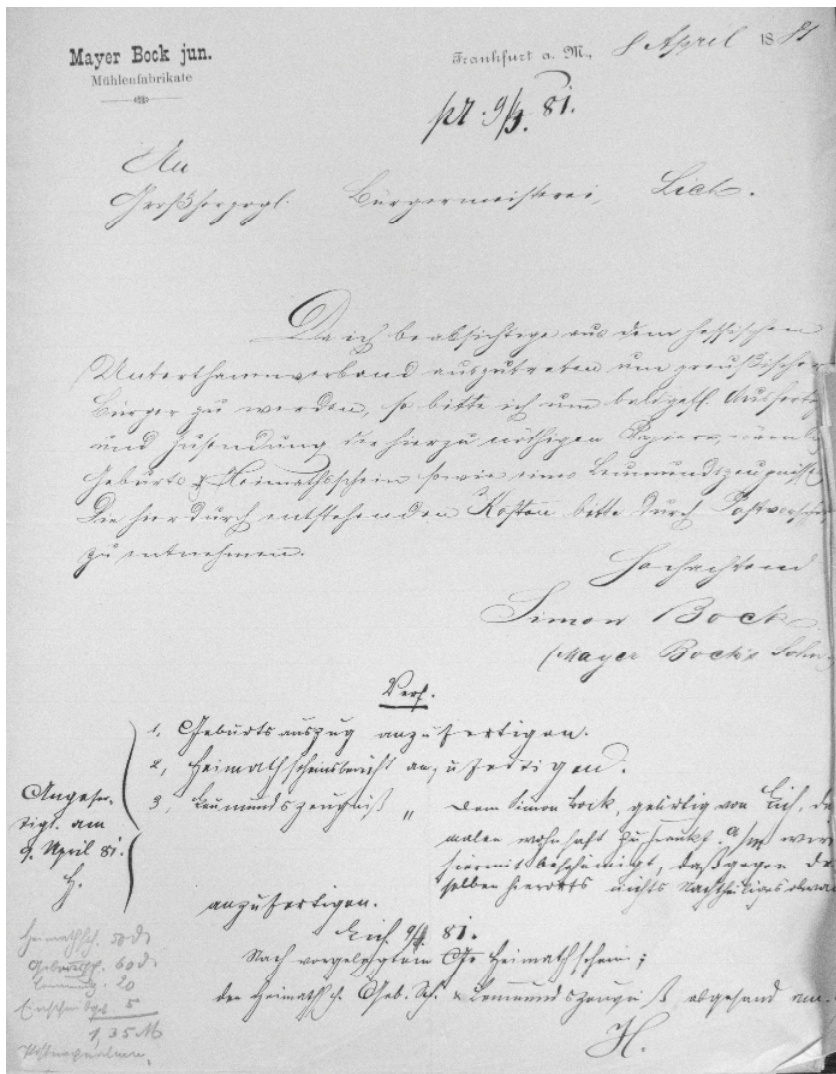 Mayer Bock jun.
Mühlenfabrikate
Frankfurt a. M., 8 April 1881
pr. 9/3. 81.
An
Großherzogl. Bürgermeisterei, Lich.
Da ich beabsichtige aus dem hessischen
Unterthanenverband auszutreten um preußischer
Bürger zu werden, so bitte ich um baldgefl. Ausfertig
und Zusendung der hierzu nöthigen Papiere, nämlich
Geburts & Heimathsschein sowie eines Leumundszeugnisses
Die hierdurch entstehenden Kosten bitte durch Postvorschuß
zu entnehmen.
Hochachtend
Simon Bock
(Mayer Bock's Sohn)
Verf.
1, Geburtsauszug anzufertigen.
2, Heimathscheinsbericht anzufertigen.
3, Leumundszeugniß " dem Simon Bock, gebürtig von Lich, der
malen wohnhaft zu Frankf. a/m wird
hiermit bescheinigt, daß gegen den
selben hierorts nichts Nachtheiliges
anzufertigen.
Angefer-
tigt am
9. April 81.
H.
Lich 9/4 81.
Nach vorgelegtem Heimathschein;
der Heimathsch. Geb. Sch. & Leumundszeugniß abgesand
H.
Heimathsch. 50 d
Geburtssch. 60 d
Leumdg. 20
5
1,35 M
Postnachnahme.